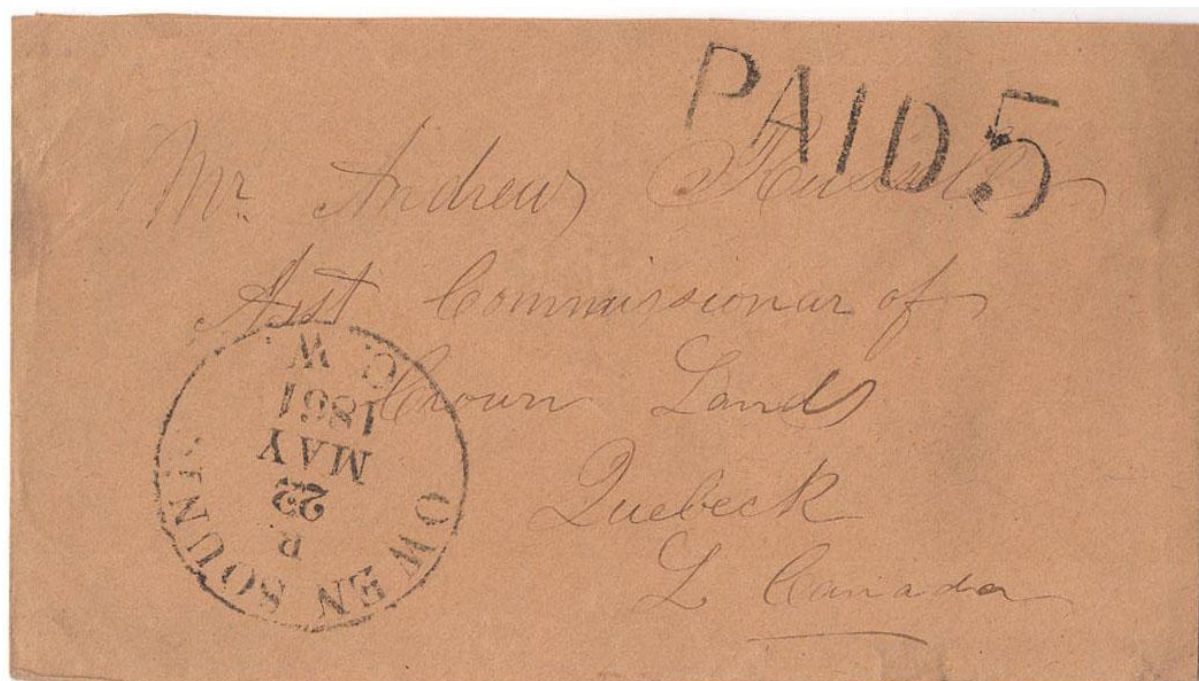 PAID 5
Mr. Andrew Russell
Asst Commissionar of
Crown Lands
Quebeck
L Canada
OWEN SOUND
P.
22
MAY
1861
C.W.